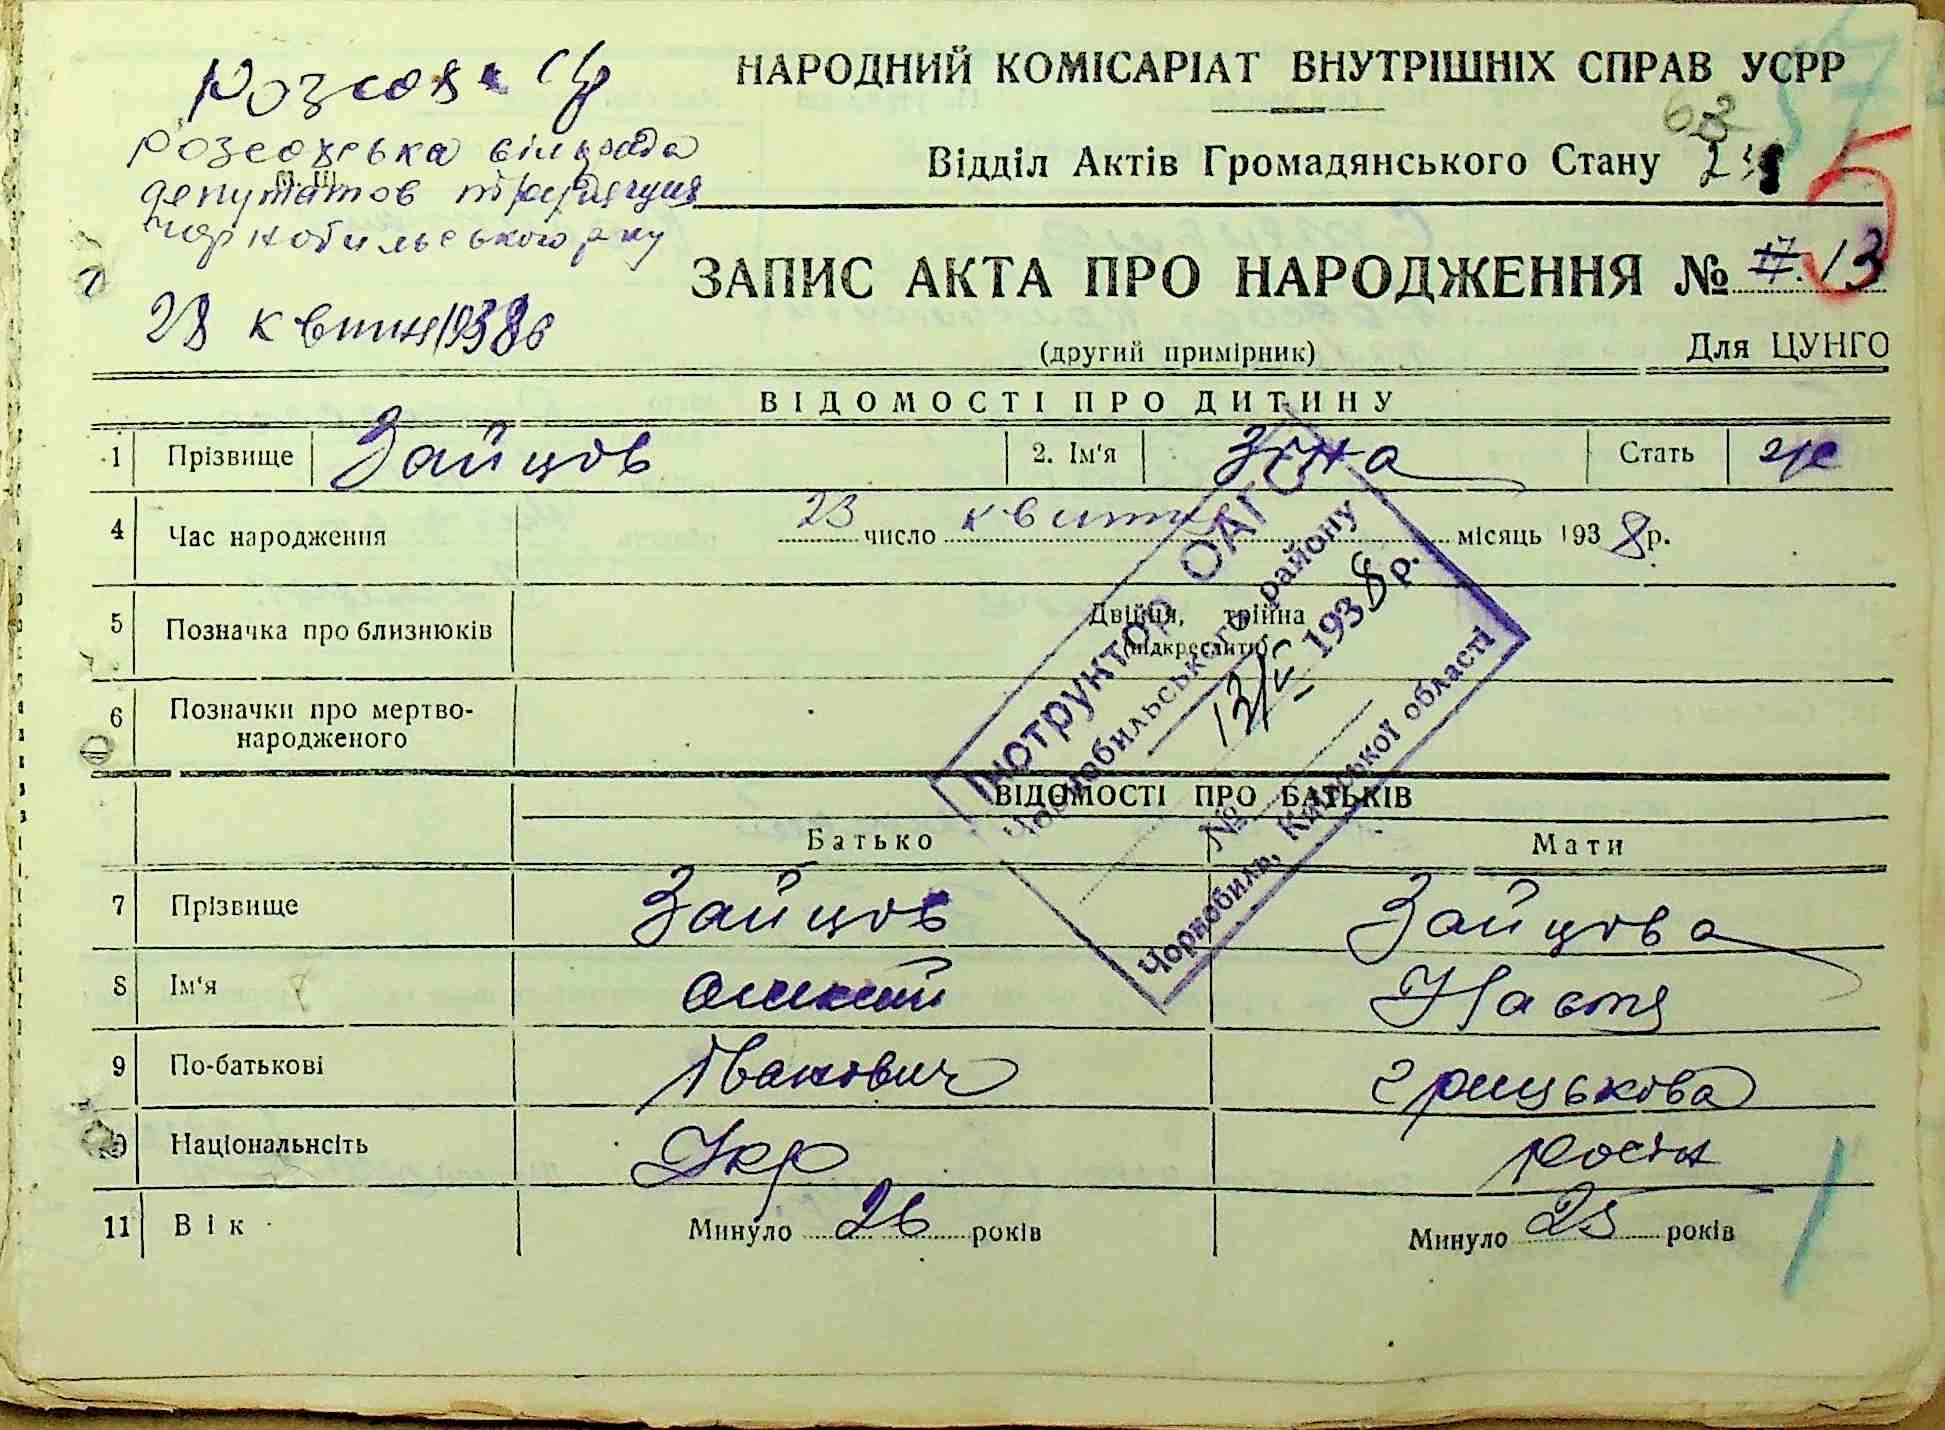 НАРОДНИЙ КОМІСАРІАТ ВНУТРІШНІХ СПРАВ УСРР
Відділ Актів Громадянського Стану
розсохська сільрада
депутатов трудящих
Чорнобильського р-ну
28 квітня 1938р
63
ЗАПИС АКТА ПРО НАРОДЖЕННЯ № 17. 13
5
(другий примірник)
Для ЦУНГО
ВІДОМОСТІ ПРО ДИТИНУ
1 Прізвище Зайцов 2. Ім'я Зіна Стать ж
4 Час народження 23 число квітня місяць 1938р.
5 Позначка про близнюків Двійня, трійня
(підкреслити)
6 Позначки про мертво-
народженого
Інструктор ОАГС
Чорнобильського району
13/V 1938р.
№
Чорнобиль, Київської області
ВІДОМОСТІ ПРО БАТЬКІВ
Батько Мати
7 Прізвище Зайцов Зайцова
8 Ім'я Настя
9 По-батькові Іванович Грицькова
10 Національність Укр росія
11 Вік Минуло 26 років Минуло 25 років